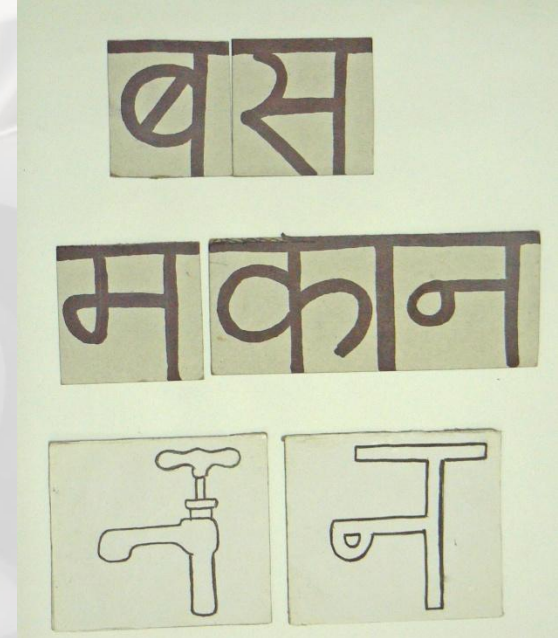 बस
मकान
न